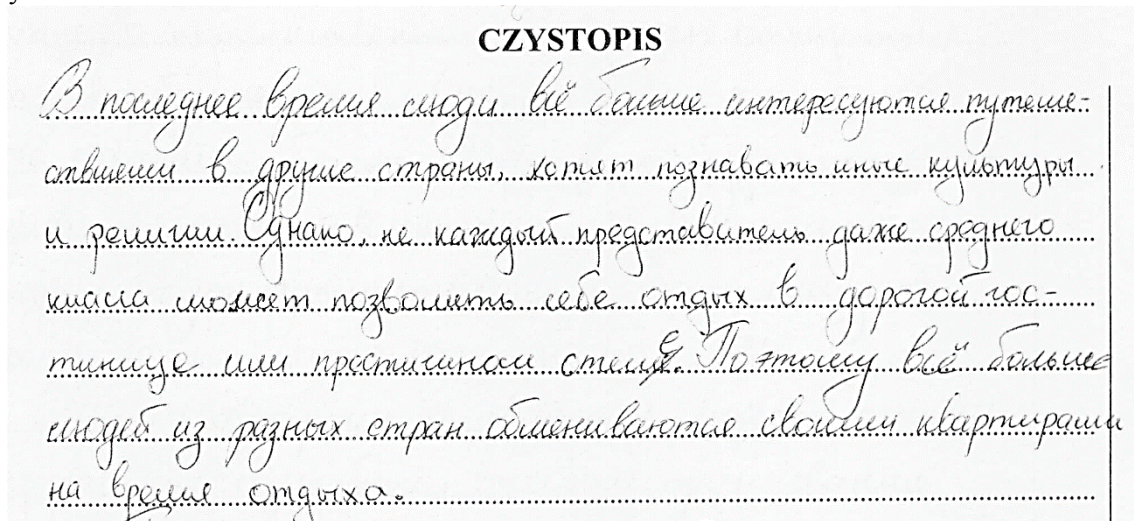 CZYSTOPIS
В последнее время люди всё больше интересуются путеше-
ствием в другие страны, хотят познавать иные культуры
и религии. Однако, не каждый представитель даже среднего
класса может позволить себе отдых в дорогой гос-
тинице или престижном отеле. Поэтому всё больше
людей из разных стран обмениваются своими квартирами
на время отдыха.